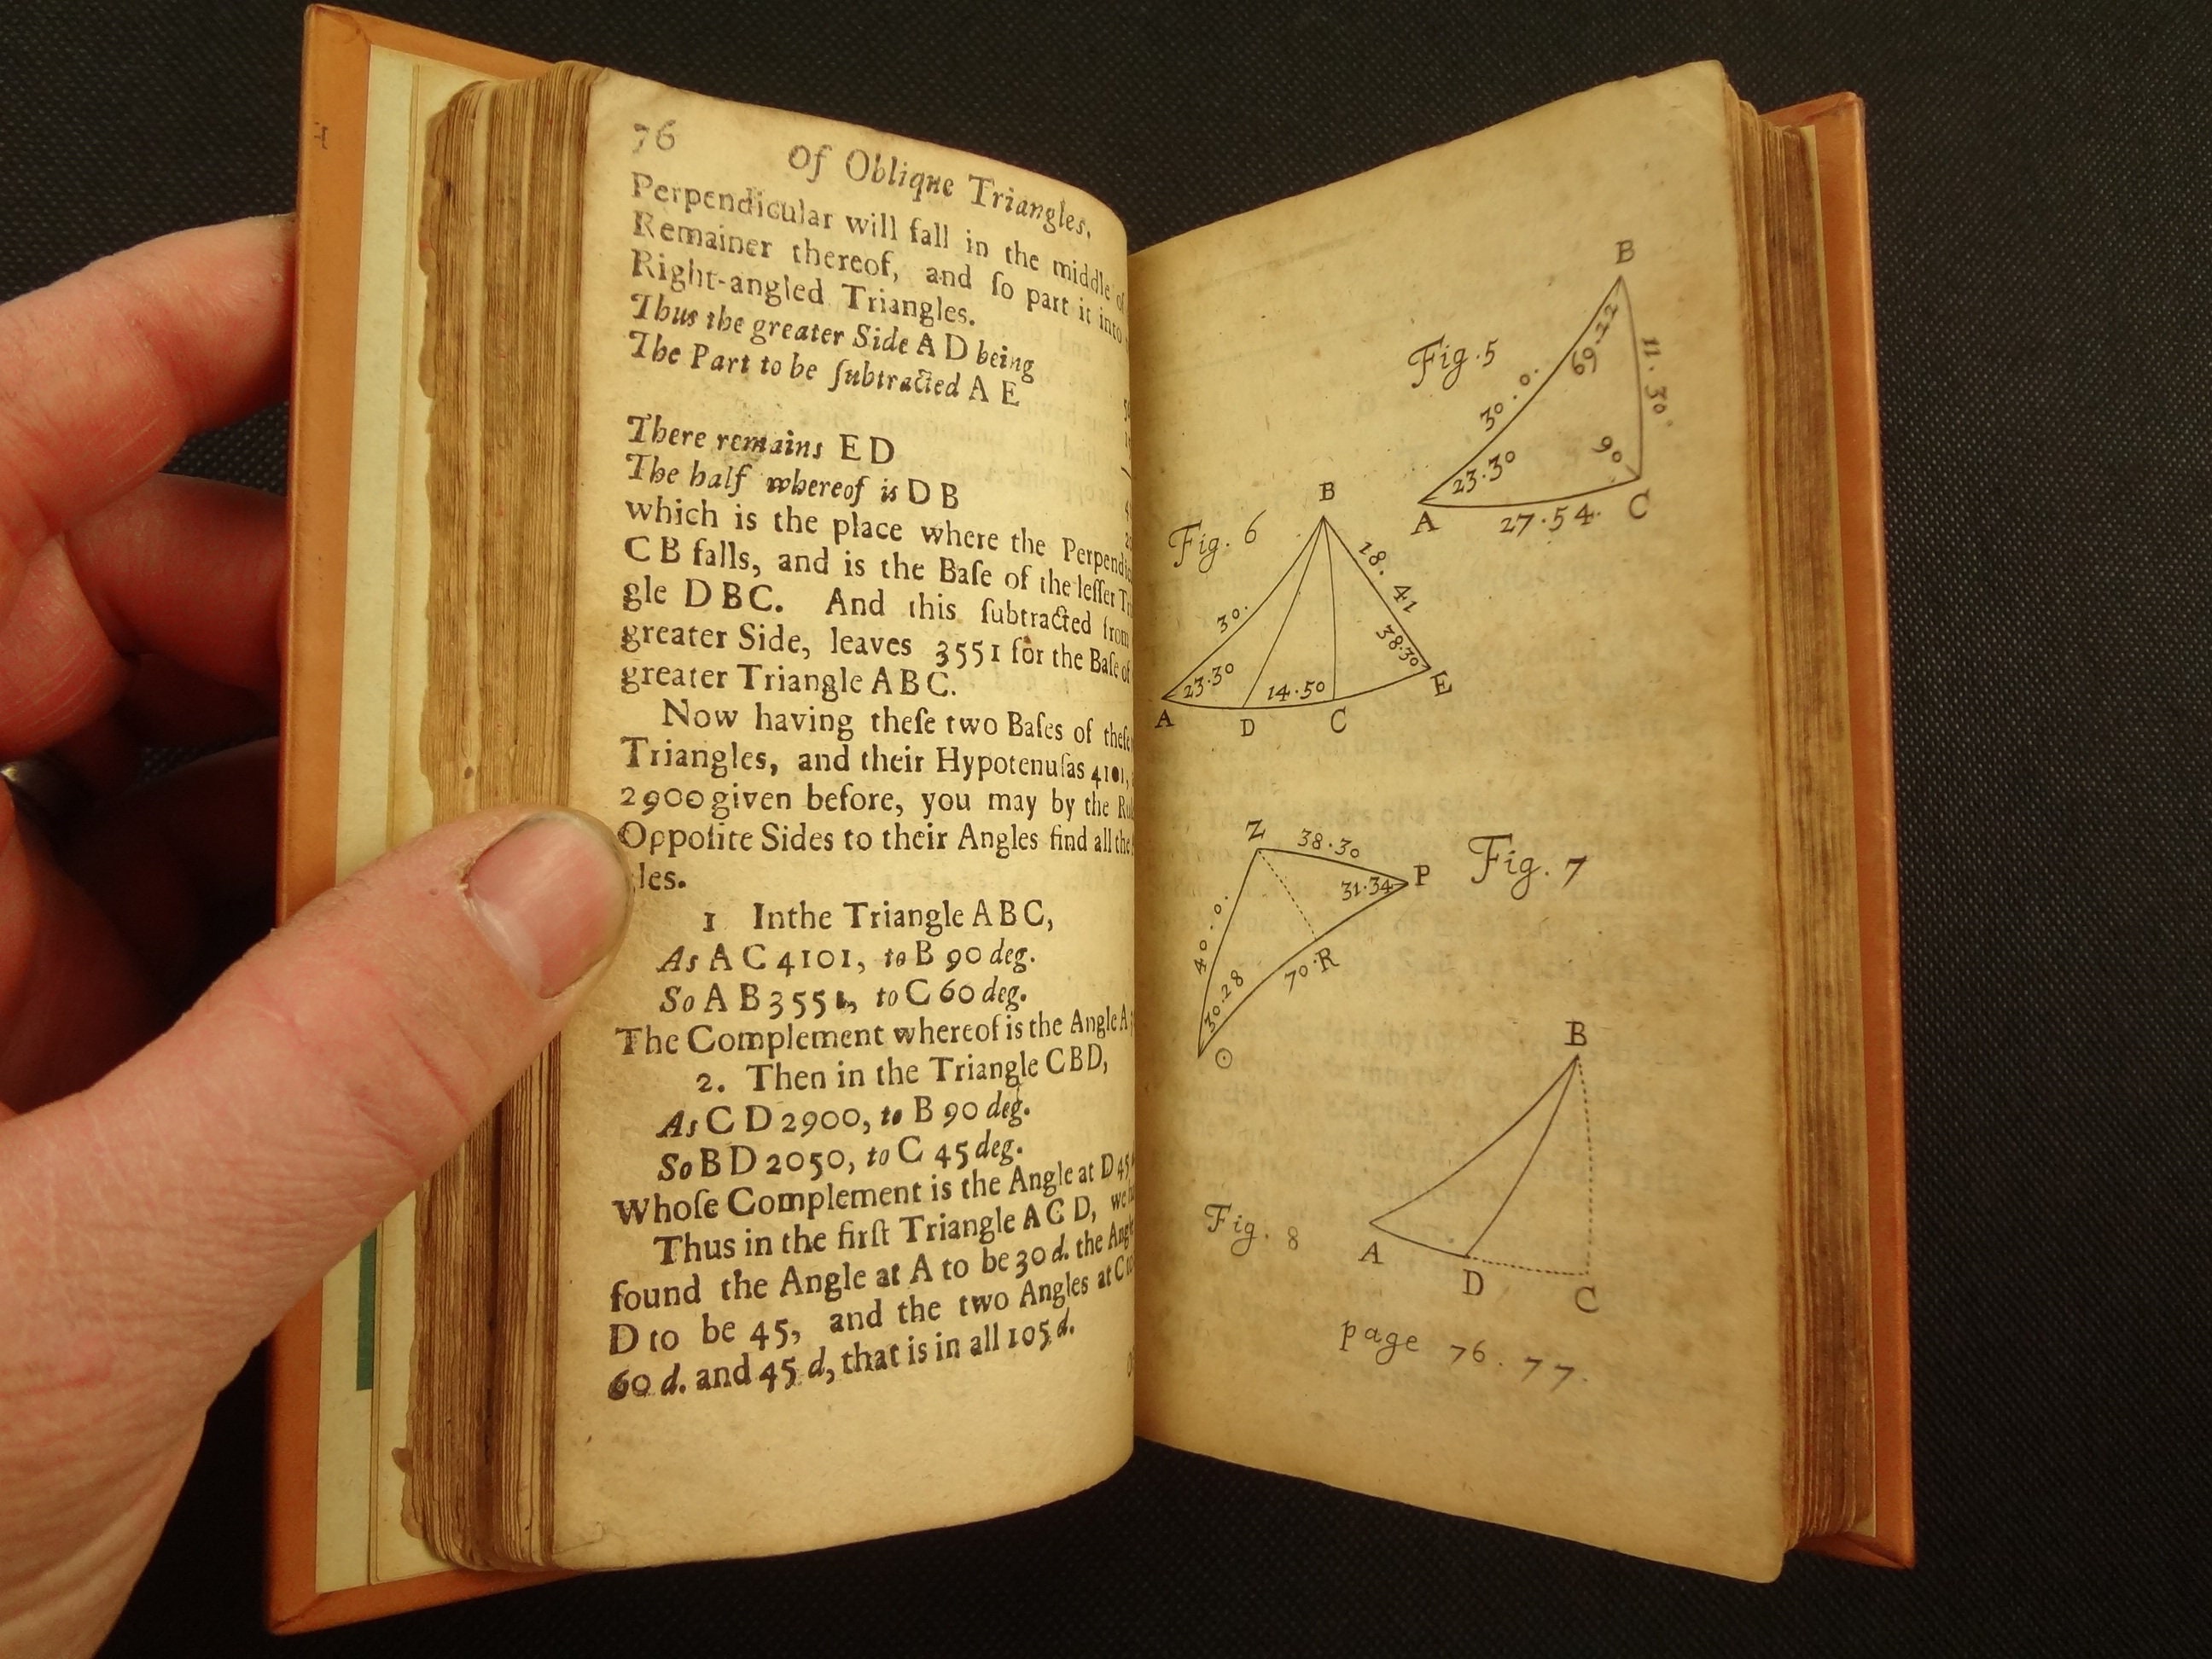 76 Of Oblique Triangles.
Perpendicular will fall in the middle of
Remainer thereof, and ſo part it into
Right-angled Triangles.
Thus the greater Side A D being
The Part to be ſubtracted A E
There remains E D
The half whereof is D B
which is the place where the
C B falls, and is the Baſe of the leſſer
gle D B C. And this ſubtracted from
greater Side, leaves 3551 for the Baſe of
greater Triangle A B C.
Now having theſe two Baſes of theſe
Triangles, and their Hypotenuſas 4101,
2900 given before, you may by the
Oppoſite Sides to their Angles find all the
gles.
1 In the Triangle A B C,
As A C 4101, to B 90 deg.
So A B 3551, to C 60 deg.
The Complement whereof is the Angle A
2. Then in the Triangle C B D,
As C D 2900, to B 90 deg.
So B D 2050, to C 45 deg.
Whoſe Complement is the Angle at D 45
Thus in the firſt Triangle A C D, we
found the Angle at A to be 30 d. the
D to be 45, and the two Angles at C
60 d. and 45 d, that is in all 105 d.
Fig. 5
B
69.22
11.30
30.0.
23.30
90
A
27.54.
C
Fig. 6
B
18.41
30.
38.30
23.30
14.50
A
D
C
E
Fig. 7
Z
38.30
P
31.34
40.0.
70.
R
30.28
☉
Fig. 8
B
A
D
C
page 76.77.